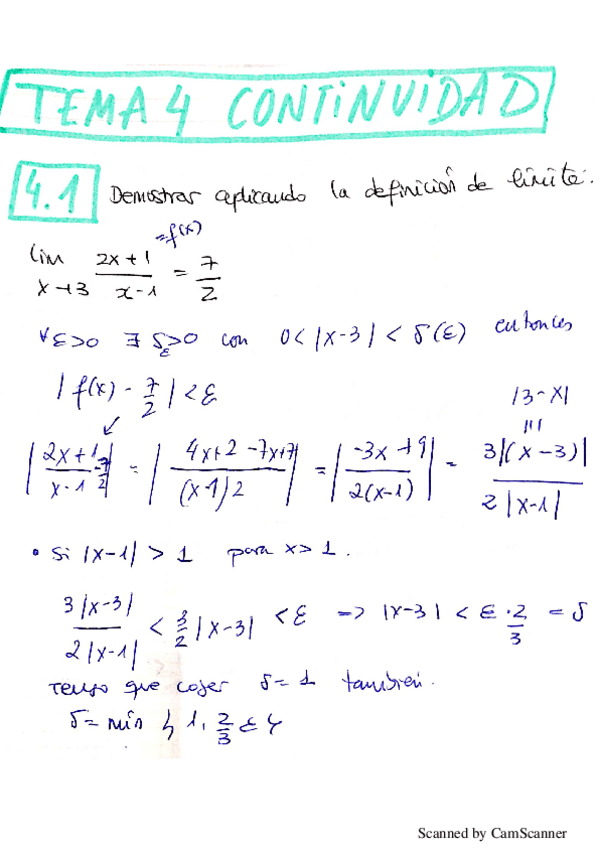 TEMA 4 CONTINUIDAD
4.1 Demostrar aplicando la definición de límite:
lim x→3 (2x+1)/(x-1) =f(x) = 7/2
∀ε>0 ∃ δ_ε>0 con 0<|x-3|<δ(ε) entonces
|f(x) - 7/2|<ε
|3-x|
|(2x+1)/(x-1) - 7/2| = |(4x+2-7x+7)/((x-1)2)| = |(-3x+9)/(2(x-1))| = 3|(x-3)|/(2|x-1|)
• Si |x-1|>1 para x>1.
3|x-3|/(2|x-1|) < 3/2|x-3| <ε => |x-3| < ε·2/3 = δ
tengo que cojer δ=1 también.
δ=min {1, 2/3 ε}
Scanned by CamScanner